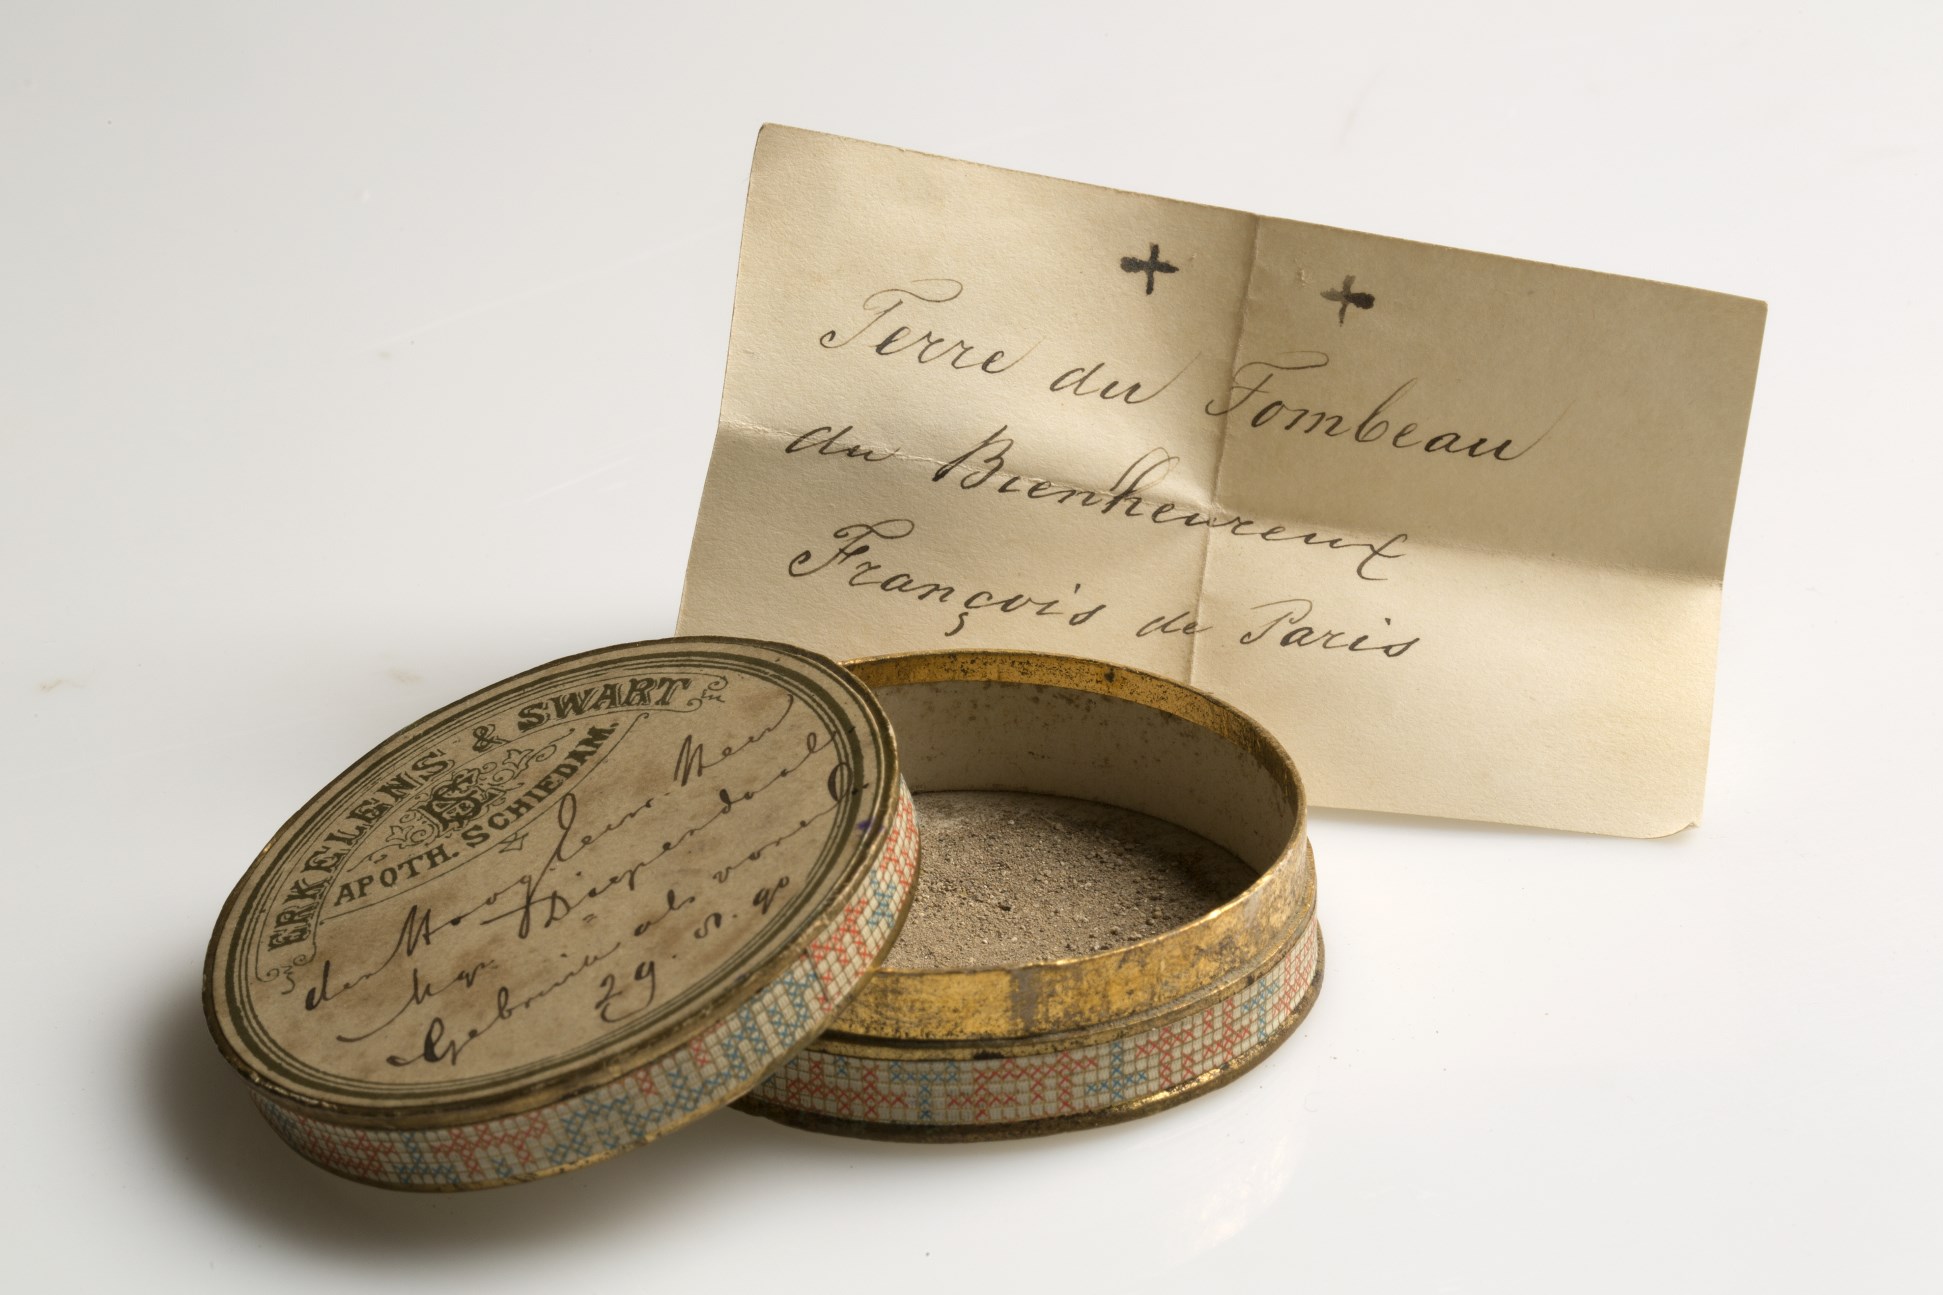 + +
Terre du Tombeau
du Bienheureux
François de Paris
ERKELENS & SWART
APOTH. SCHIEDAM.
den Hoogeleerw. Heer
Mgr. Diependaal
Gebruik als voren
29. 5. 90